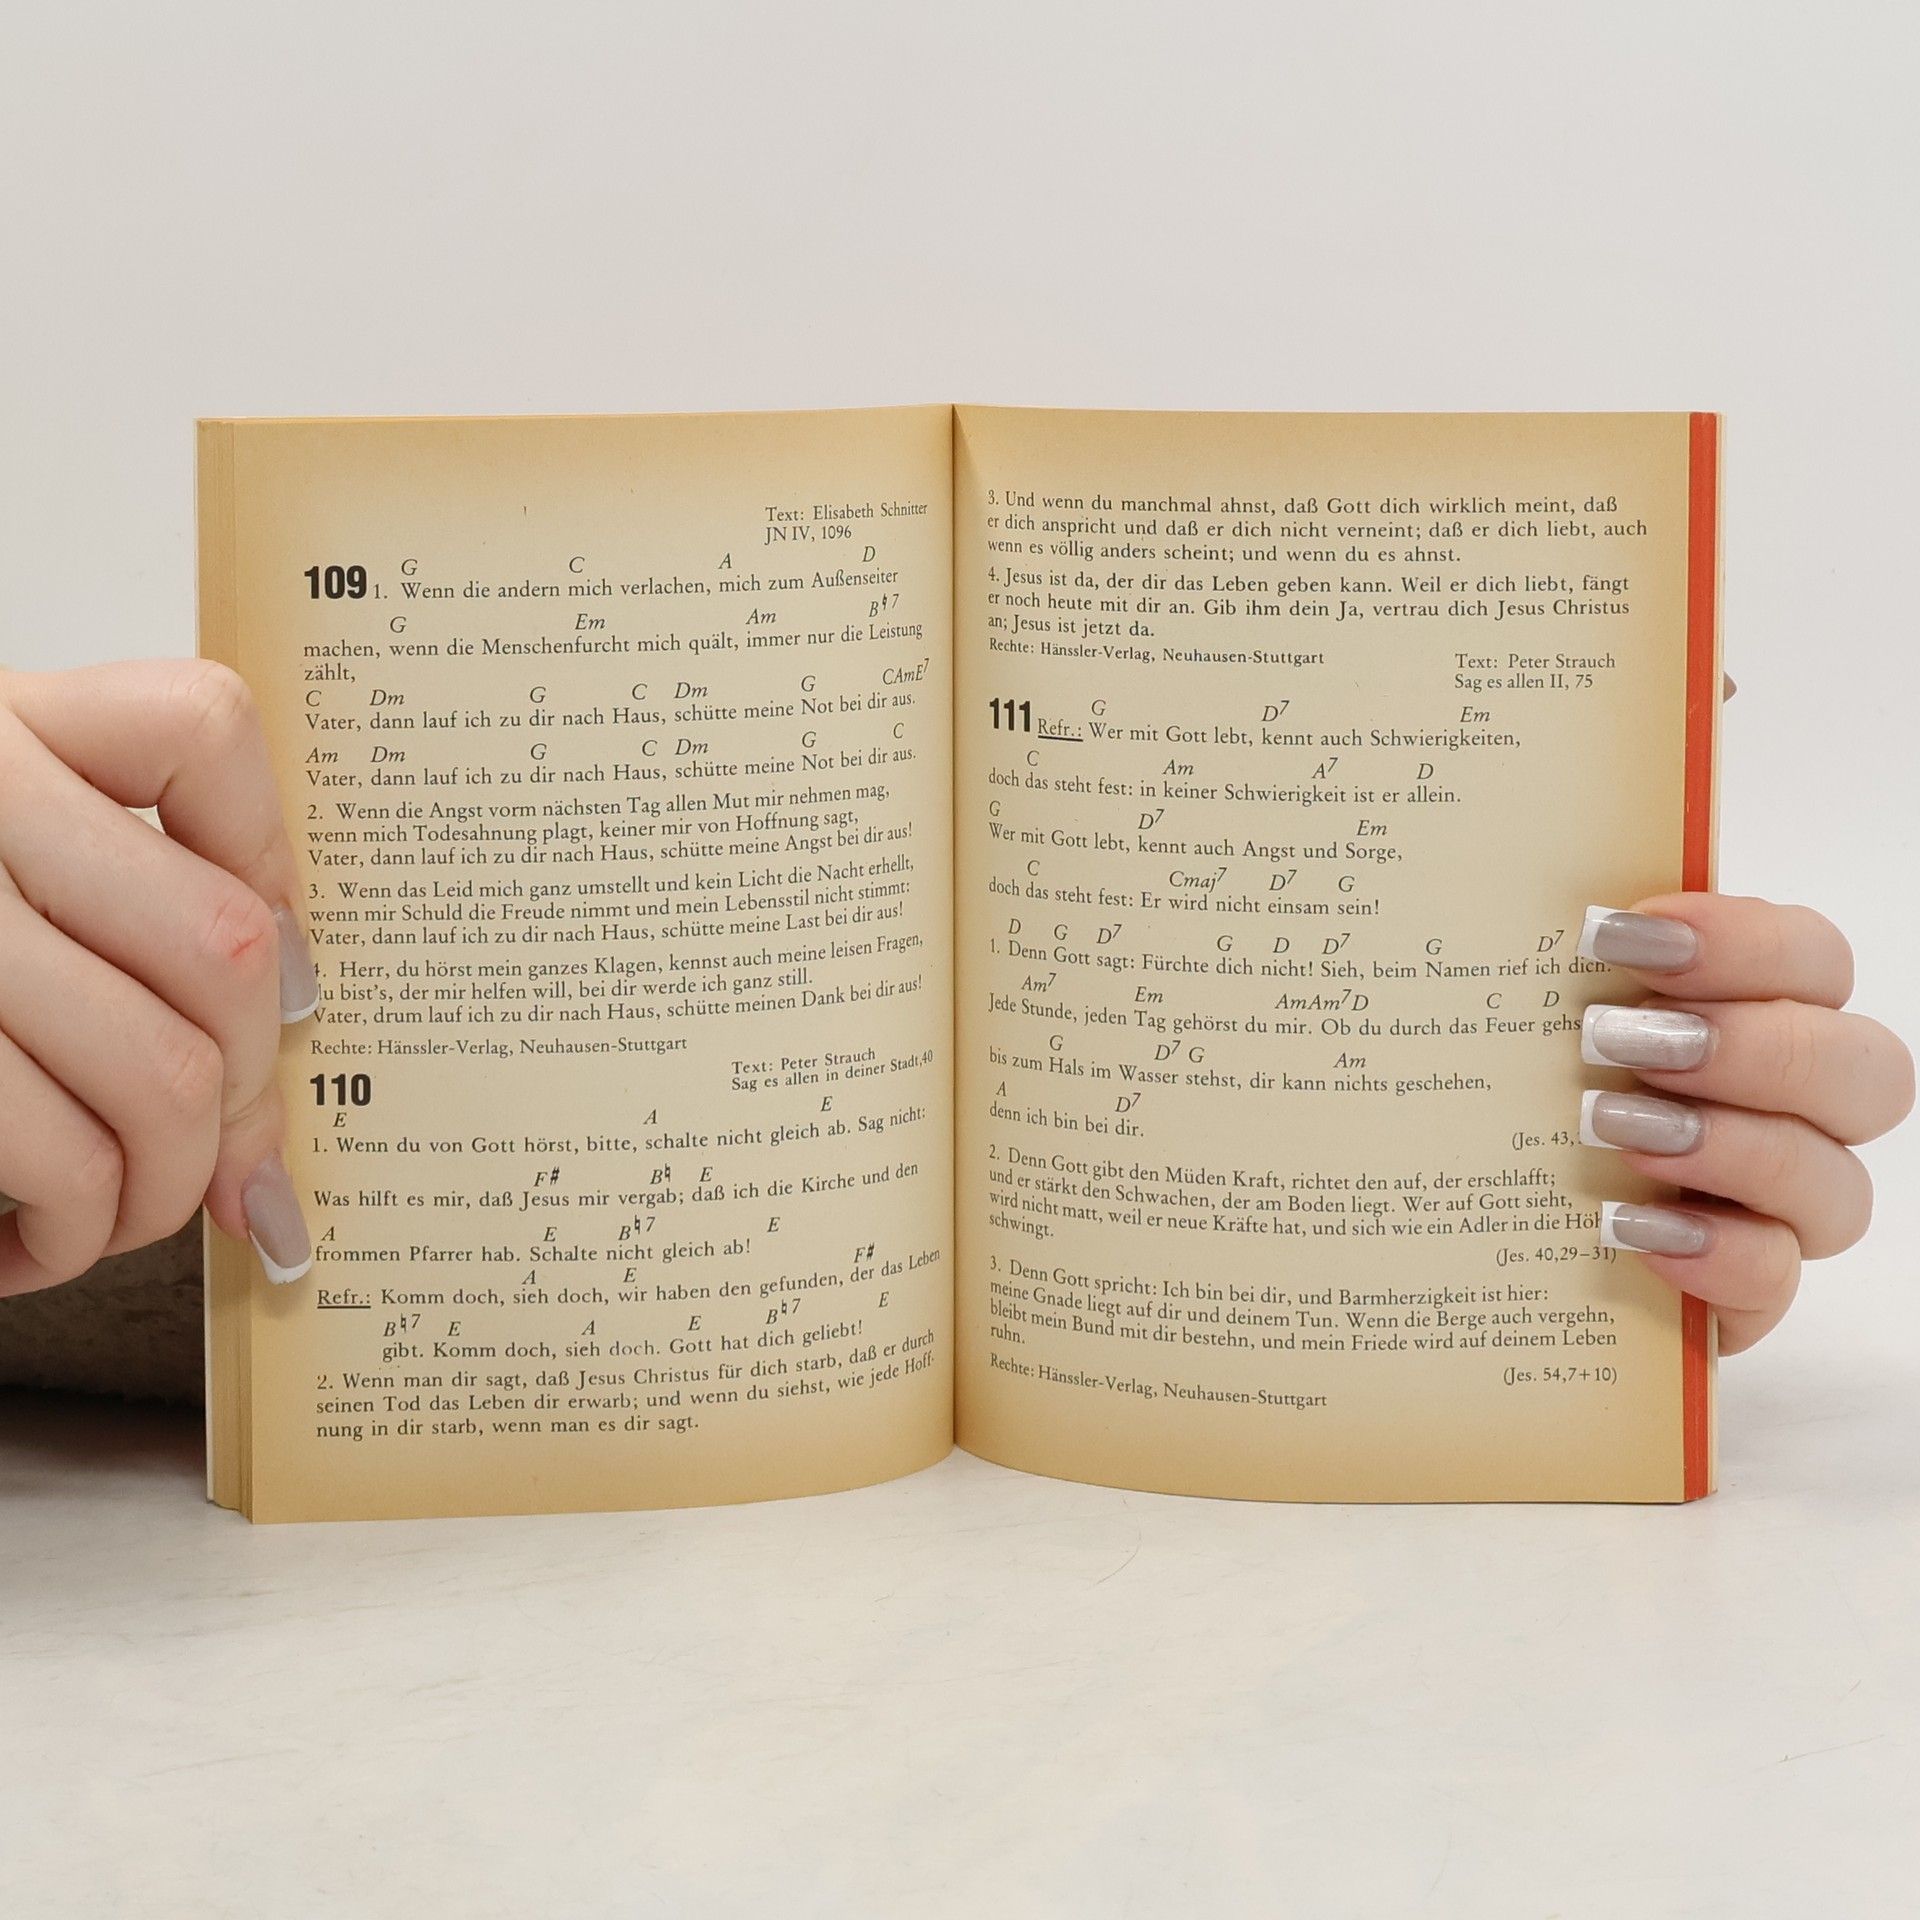 Text: Elisabeth Schnitter
JN IV, 1096
G C A D
109 1. Wenn die andern mich verlachen, mich zum Außenseiter
G Em Am B♮7
machen, wenn die Menschenfurcht mich quält, immer nur die Leistung
zählt,
C Dm G C Dm G CAmE7
Vater, dann lauf ich zu dir nach Haus, schütte meine Not bei dir aus.
Am Dm G C Dm G C
Vater, dann lauf ich zu dir nach Haus, schütte meine Not bei dir aus.
2. Wenn die Angst vorm nächsten Tag allen Mut mir nehmen mag,
wenn mich Todesahnung plagt, keiner mir von Hoffnung sagt,
Vater, dann lauf ich zu dir nach Haus, schütte meine Angst bei dir aus!
3. Wenn das Leid mich ganz umstellt und kein Licht die Nacht erhellt,
wenn mir Schuld die Freude nimmt und mein Lebensstil nicht stimmt:
Vater, dann lauf ich zu dir nach Haus, schütte meine Last bei dir aus!
4. Herr, du hörst mein ganzes Klagen, kennst auch meine leisen Fragen,
du bist's, der mir helfen will, bei dir werde ich ganz still.
Vater, drum lauf ich zu dir nach Haus, schütte meinen Dank bei dir aus!
Rechte: Hänssler-Verlag, Neuhausen-Stuttgart
Text: Peter Strauch
Sag es allen in deiner Stadt,40
110
E A E
1. Wenn du von Gott hörst, bitte, schalte nicht gleich ab. Sag nicht:
F# B♮ E
Was hilft es mir, daß Jesus mir vergab; daß ich die Kirche und den
A E B♮7 E
frommen Pfarrer hab. Schalte nicht gleich ab!
A E F#
Refr.: Komm doch, sieh doch, wir haben den gefunden, der das Leben
B♮7 E A E B♮7 E
gibt. Komm doch, sieh doch. Gott hat dich geliebt!
2. Wenn man dir sagt, daß Jesus Christus für dich starb, daß er durch
seinen Tod das Leben dir erwarb; und wenn du siehst, wie jede Hoff-
nung in dir starb, wenn man es dir sagt.
3. Und wenn du manchmal ahnst, daß Gott dich wirklich meint, daß
er dich anspricht und daß er dich nicht verneint; daß er dich liebt, auch
wenn es völlig anders scheint; und wenn du es ahnst.
4. Jesus ist da, der dir das Leben geben kann. Weil er dich liebt, fängt
er noch heute mit dir an. Gib ihm dein Ja, vertrau dich Jesus Christus
an; Jesus ist jetzt da.
Rechte: Hänssler-Verlag, Neuhausen-Stuttgart
Text: Peter Strauch
Sag es allen II, 75
G D7 Em
111 Refr.: Wer mit Gott lebt, kennt auch Schwierigkeiten,
C Am A7 D
doch das steht fest: in keiner Schwierigkeit ist er allein.
G D7 Em
Wer mit Gott lebt, kennt auch Angst und Sorge,
C Cmaj7 D7 G
doch das steht fest: Er wird nicht einsam sein!
D G D7 G D D7 G D7
1. Denn Gott sagt: Fürchte dich nicht! Sieh, beim Namen rief ich dich.
Am7 Em AmAm7D C D
Jede Stunde, jeden Tag gehörst du mir. Ob du durch das Feuer gehs
G D7 G Am
bis zum Hals im Wasser stehst, dir kann nichts geschehen,
A D7
denn ich bin bei dir.
(Jes. 43,
2. Denn Gott gibt den Müden Kraft, richtet den auf, der erschlafft;
und er stärkt den Schwachen, der am Boden liegt. Wer auf Gott sieht,
wird nicht matt, weil er neue Kräfte hat, und sich wie ein Adler in die Höh
schwingt.
(Jes. 40,29–31)
3. Denn Gott spricht: Ich bin bei dir, und Barmherzigkeit ist hier:
meine Gnade liegt auf dir und deinem Tun. Wenn die Berge auch vergehn,
bleibt mein Bund mit dir bestehn, und mein Friede wird auf deinem Leben
ruhn.
(Jes. 54,7+10)
Rechte: Hänssler-Verlag, Neuhausen-Stuttgart